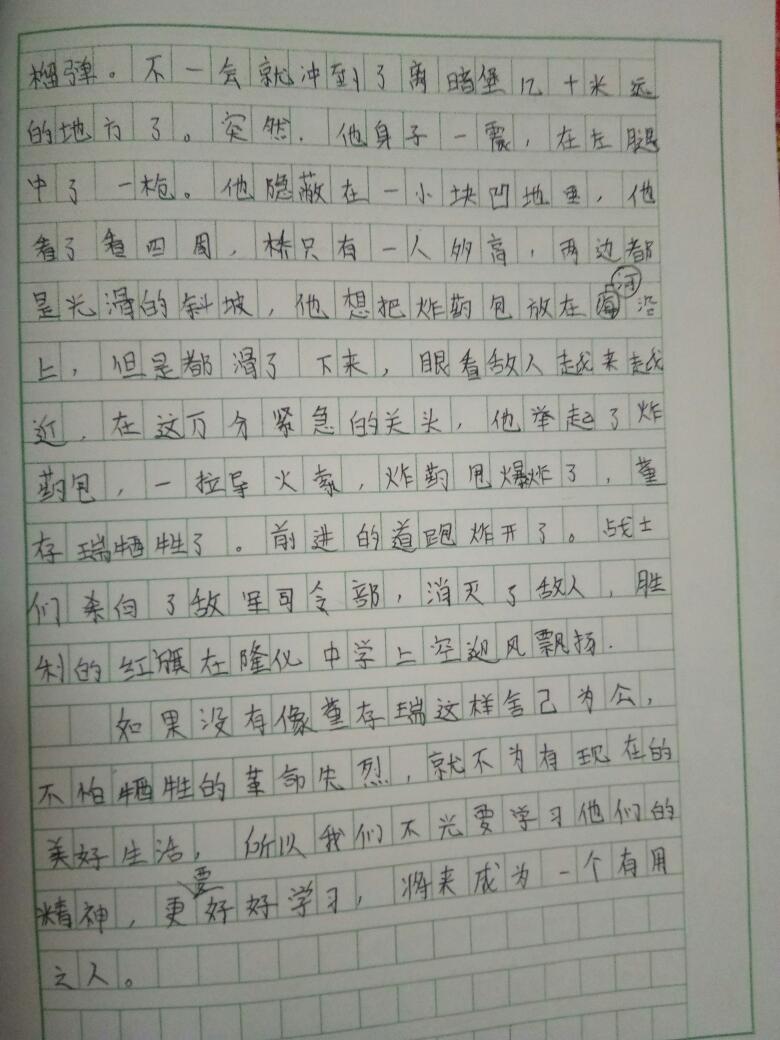 榴弹。不一会就冲到了离暗堡几十米远
的地方了。突然.他身子一震,在左腿
中了一枪。他隐蔽在一小块凹地里,他
看了看四周,桥只有一人多高,两边都
是光滑的斜坡,他想把炸药包放在河沿
上,但是都滑了下来,眼看敌人越来越
近,在这万分紧急的关头,他举起了炸
药包,一拉导火索,炸药包爆炸了,董
存瑞牺牲了。前进的道跑炸开了。战士
们杀向了敌军司令部,消灭了敌人,胜
利的红旗在隆化中学上空迎风飘扬.
如果没有像董存瑞这样舍己为公,
不怕牺牲的革命先烈,就不为有现在的
美好生活,所以我们不光要学习他们的
精神,更要好好学习,将来成为一个有用
之人。